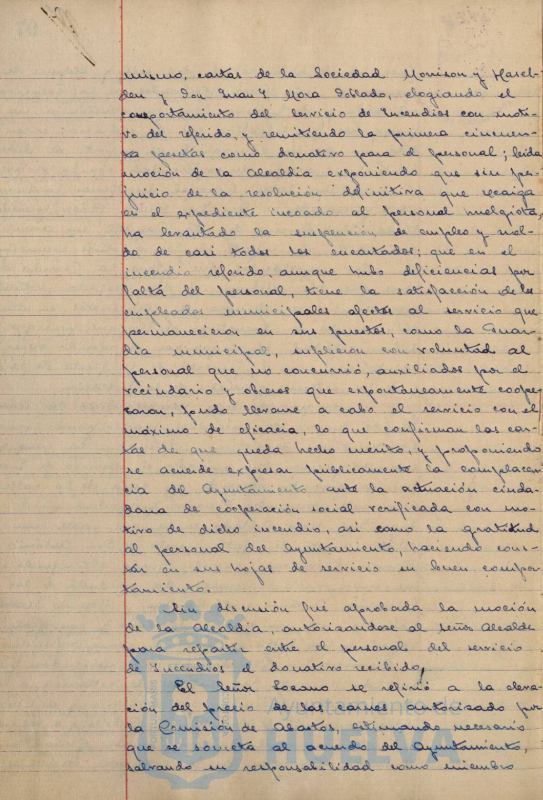 mismo, cartas de la Sociedad Morrison y Hasel-
den y Don Juan J. Mora Doblado, elogiando el
comportamiento del servicio de Incendios con moti-
vo del referido, y remitiendo la primera cincuen-
ta pesetas como donativo para el personal; leida
moción de la Alcaldia exponiendo que sin per-
juicio de la resolución definitiva que recaiga
en el expediente incoado al personal huelguista,
ha levantado la suspensión de empleo y suel-
do de casi todos los encartados; que en el
incendio referido, aunque hubo deficiencias por
falta del personal, tiene la satisfacción de los
empleados municipales afectos al servicio que
permanecieron en sus puestos, como la Guar-
dia municipal, suplieron con voluntad al
personal que no concurrió, auxiliados por el
vecindario y obreros que expontáneamente coope-
raron, pudo llevarse a cabo el servicio con el
máximo de eficacia, lo que confirman las car-
tas de que queda hecho mérito, y proponiendo
se acuerde expresar públicamente la complacen-
cia del Ayuntamiento ante la actuación ciuda-
dana de cooperación social verificada con mo-
tivo de dicho incendio, asi como la gratitud
al personal del Ayuntamiento, haciendo cons-
tar en sus hojas de servicio su buen compor-
tamiento.
Sin discusión fué aprobada la moción
de la Alcaldia, autorizandose al señor Alcalde
para repartir entre el personal del servicio
de Incendios el donativo recibido,
El Señor Lozano se refirió a la eleva-
ción del precio de las carnes autorizado por
la Comisión de Abastos, estimando necesario
que se someta al acuerdo del Ayuntamiento,
salvando su responsabilidad como miembro
Ayuntamiento de
HUELVA